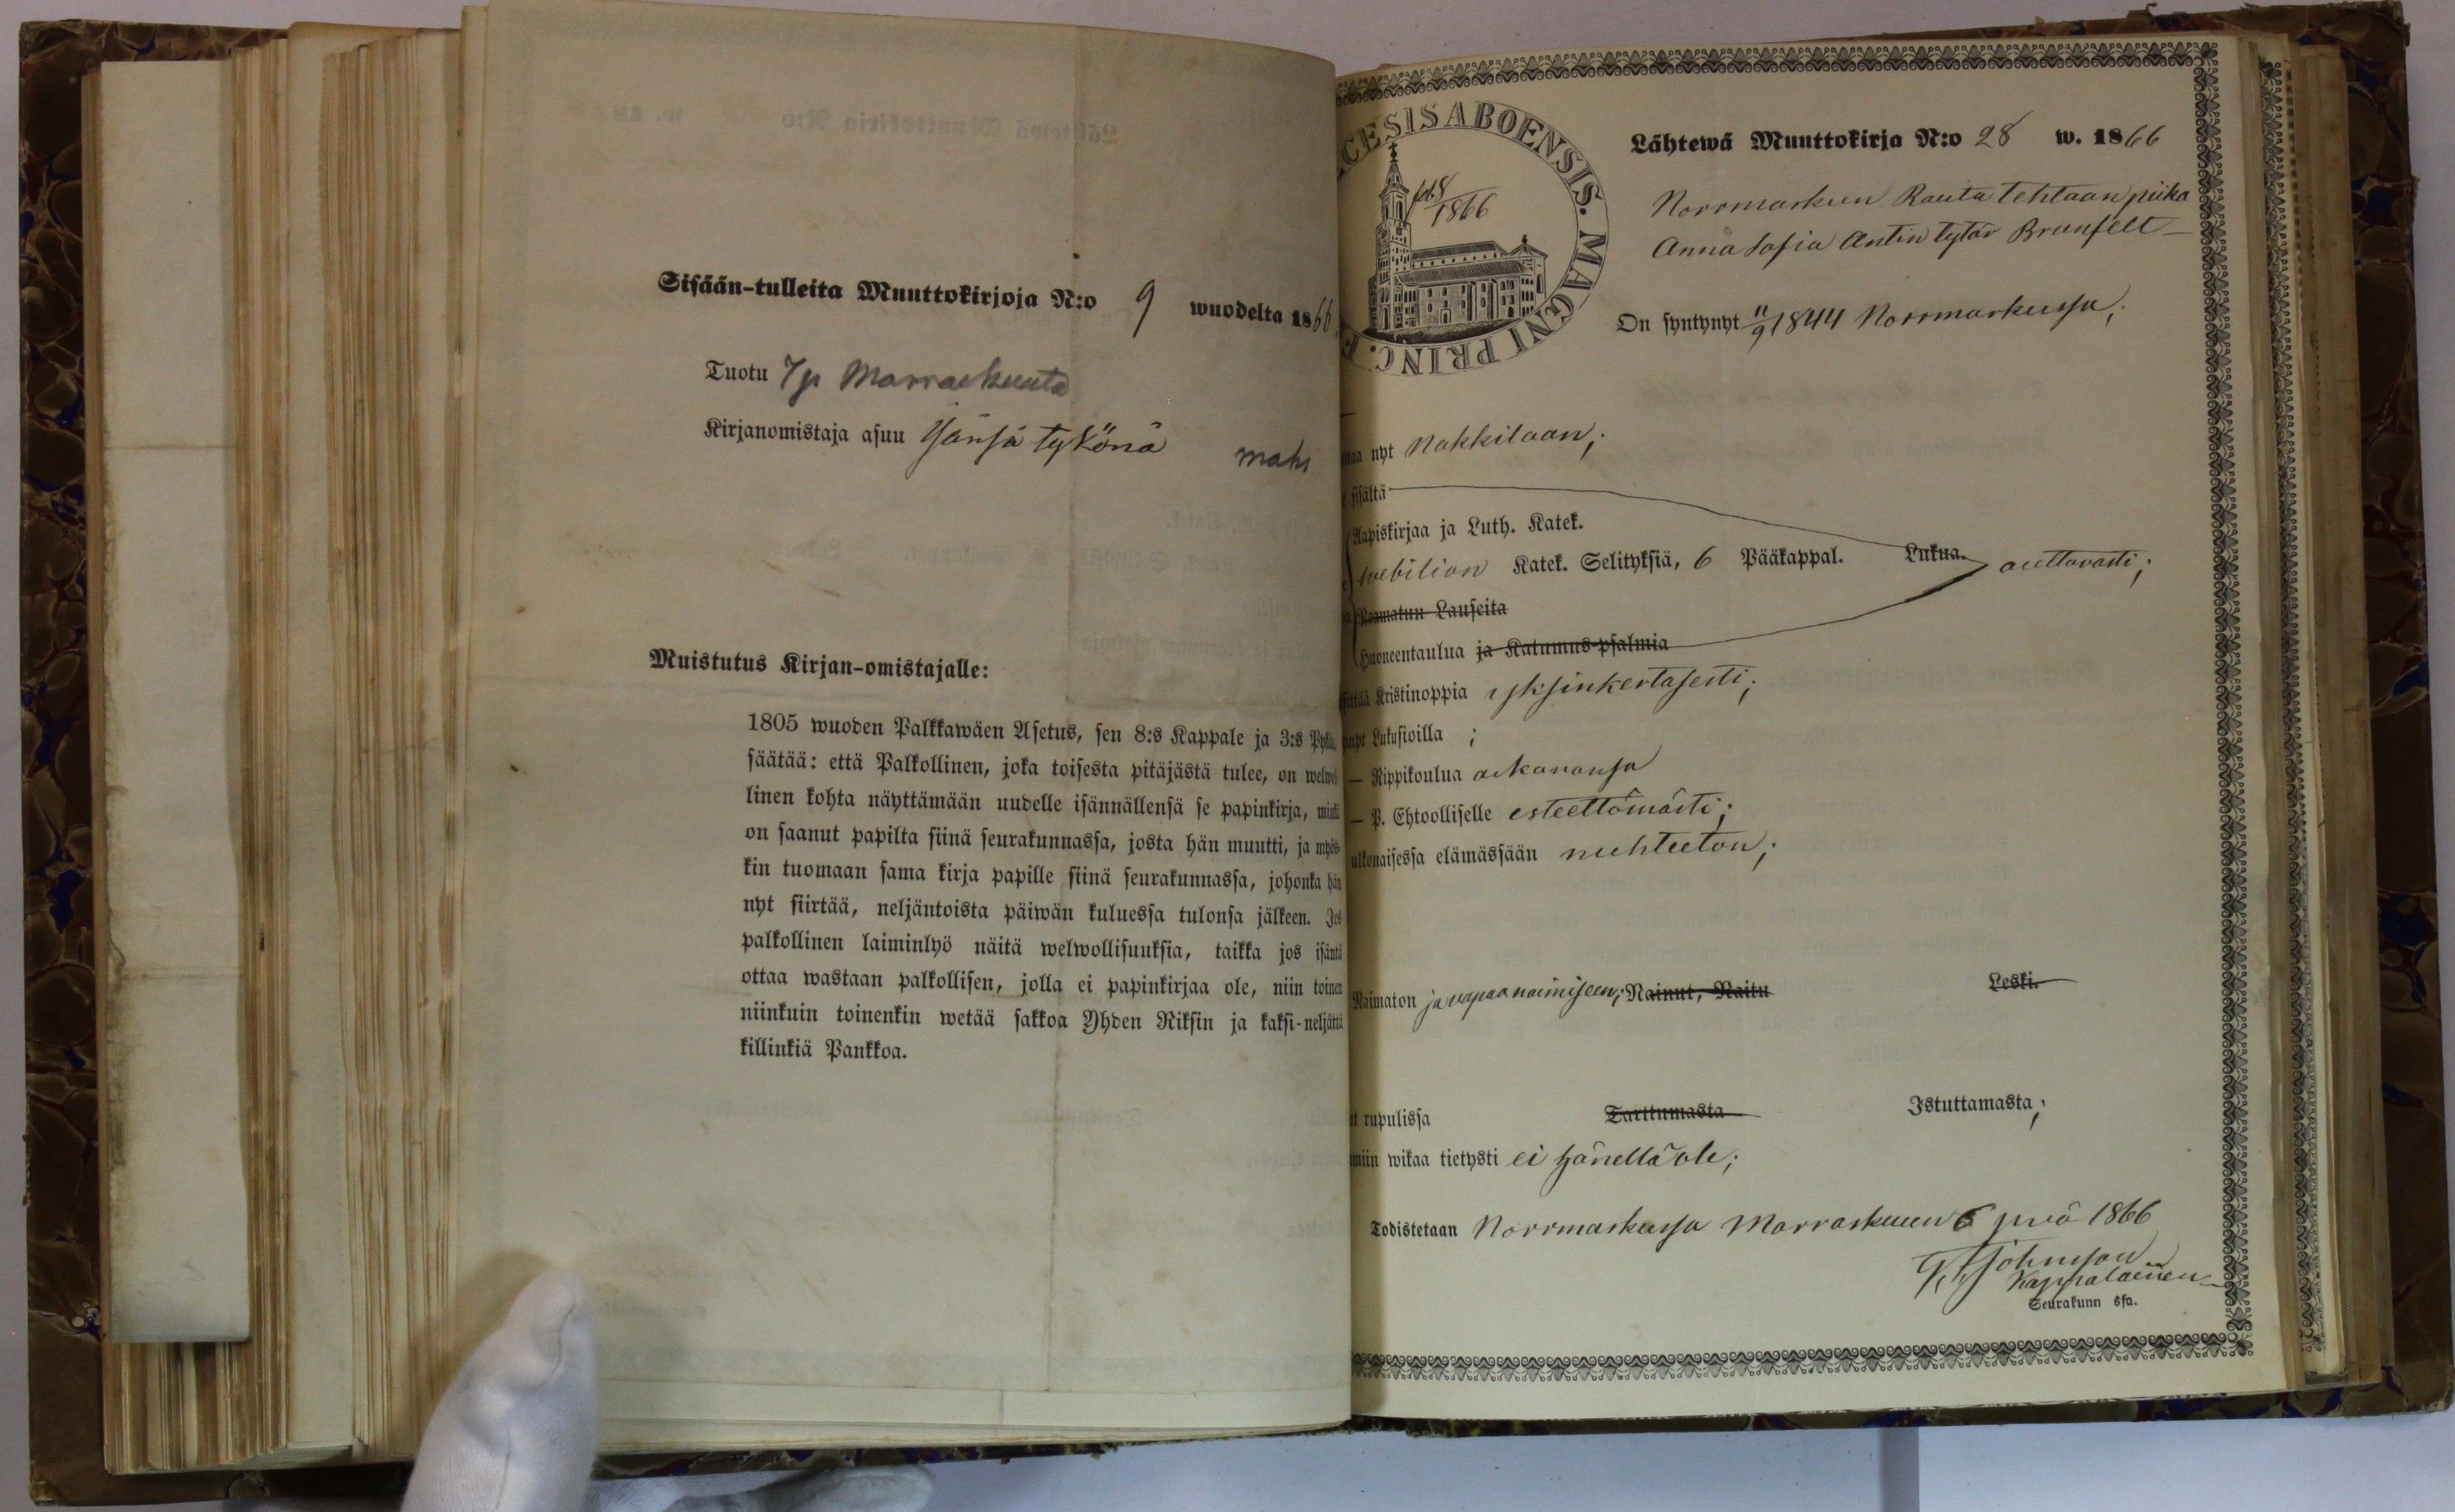 Sisään-tulleita Muuttokirjoja N:o 9 wuodelta 1866.
Tuotu 7 p Marraskuuta
Kirjanomistaja asuu Jänsä tykönä
Muistutus Kirjan-omistajalle:
1805 wuoden Palkkawäen Asetus, sen 8:s Kappale ja 3:s
säätää: että Palkollinen, joka toisesta pitäjästä tulee, on
linen kohta näyttämään uudelle isännällensä se papinkirja, minkä
on saanut papilta siinä seurakunnassa, josta hän muutti, ja myös-
kin tuomaan sama kirja papille siinä seurakunnassa, johonka hän
nyt siirtää, neljäntoista päiwän kuluessa tulonsa jälkeen. Jos
palkollinen laiminlyö näitä welwollisuuksia, taikka jos isäntä
ottaa wastaan palkollisen, jolla ei papinkirjaa ole, niin toinen
niinkuin toinenkin wetää sakkoa Yhden Riksin ja kaksi-neljättä
killinkiä Pankkoa.
CESIS ABOENSIS. MAGNI PRINC. F
1866
Lähtewä Muuttokirja N:o 28 w. 1866
Norrmarkun Rauta tehtaan piika
Anna Sofia Antin tytär Brunfelt
On syntynyt 11/9 1844 Norrmarkussa;
nyt Nakkilaan;
sisältä
Aapiskirjaa ja Luth. Katek.
Swebilion Katek. Selityksiä, 6 Pääkappal. Lukua. auttavasti;
Raamatun Lauseita
Huoneentaulua ja Katumus-psalmia
Kristinoppia yksinkertasesti;
Lukusioilla ;
— Rippikoulua aikanansa
— P. Ehtoolliselle esteettömästi;
ulkonaisessa elämässään nuhteeton;
Naimaton ja vapaa naimiseen; Nainut, Naitu Leski.
rupulissa Tarttumasta Istuttamasta;
wikaa tietysti ei hänellä ole;
Todistetaan Norrmarkussa Marraskuun 6 pnä 1866
Johnsson
Kappalainen
Seurakunn ssa.